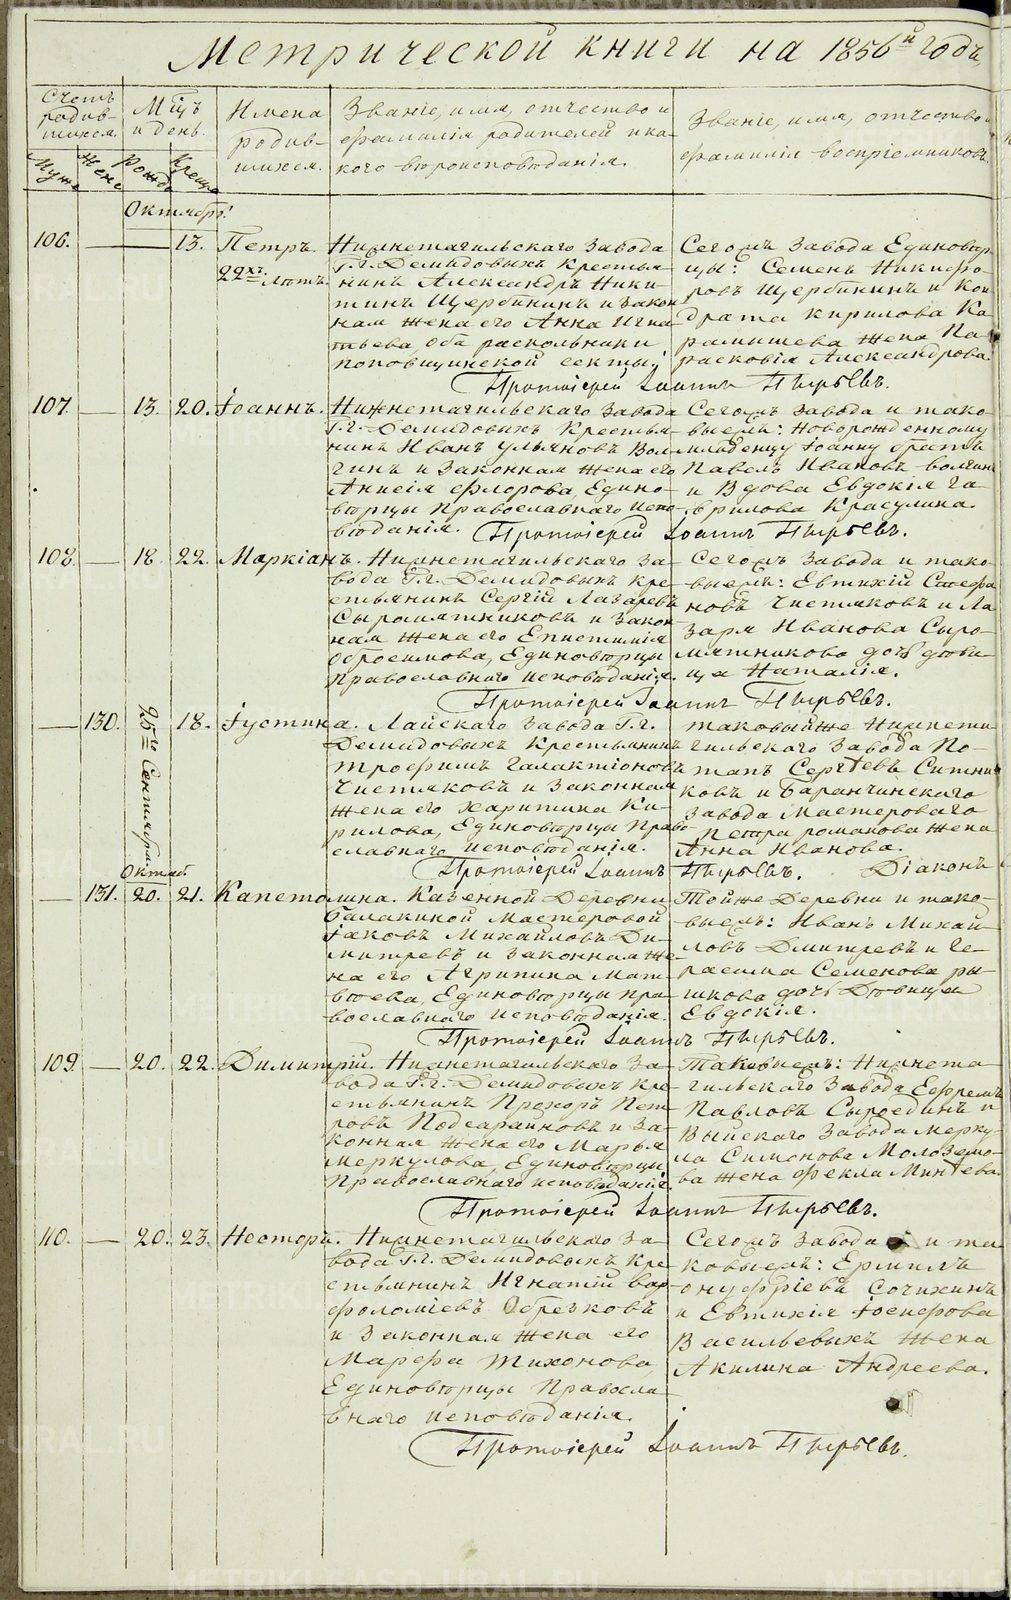 Метрической книги на 1856й годъ,
Счетъ родив-шихся.
Мужс
Женс
М͠цъ и день.
Рожд
Крещ
Имена родив-шихся.
Званіе, имя, отчество и фамилія родителей и ка-кого вѣроисповѣданія.
Званіе, имя, отчество и фамилія воспріемниковъ
Октябрь.
106. — — 13. Петръ.
22хъ лѣтъ.
Нижнетагильскаго завода
Г.г. Демидовыхъ крестья-
нинъ Александръ Ники-
тинъ Щербининъ и закон
ная жена его Анна Игна-
тьева оба раскольники
поповщинской секты;
Сегожъ завода Единовѣр
цы: Семенъ Никифо-
ровъ Щербининъ и Кон
драта Кирилова Ка-
рамышева жена Па-
расковія Александрова.
Протоіерей Іоаннъ Пырьевъ.
107. — 13. 20. Іоаннъ.
Нижнетагильскаго завода
Г.г. Демидовыхъ крестья-
нинъ Иванъ Ульяновъ Вол-
гинъ и законная жена его
Анисія Флорова, Едино-
вѣрцы Православнаго испо-
вѣданія.
Сегожъ завода и тако-
выежъ: новорожденному
младенцу Іоанну братъ
Павелъ Ивановъ Волгинъ
и вдова Евдокія Га-
врилова Красулина.
Протоіерей Іоаннъ Пырьевъ.
108. — 18. 22. Маркіанъ.
Нижнетагильскаго за-
вода Г.г. Демидовыхъ кре-
стьянинъ Сергій Лазаревъ
Сыромятниковъ и закон
ная жена его Епистимія
Обросимова, Единовѣрцы
Православнаго исповѣданія.
Сегожъ завода и тако-
выежъ: Евтихій Стефа
новъ Чистяковъ и Ла
заря Иванова Сыро-
мятникова дочь дѣви-
ца Наталія.
Протоіерей Іоаннъ Пырьевъ.
— 130. 25го Сентября. 18. Іустина.
Лайскаго завода Г.г.
Демидовыхъ крестьянинъ
Трофимъ Галактіоновъ
Чистяковъ и законная
жена его Харитина Ки-
рилова, Единовѣрцы Право-
славнаго исповѣданія.
таковыйже Нижнета
гильскаго завода По-
тапъ Сергѣевъ Ситни
ковъ и Баранчинскаго
завода Мастероваго
Петра Романова жена
Анна Иванова.
Протоіерей Іоаннъ Пырьевъ. Діаконъ
Октяб.
— 131. 20. 21. Капетолина.
Казенной Деревни
Балакиной Мастеровой
Іаковъ Михайловъ Ди-
митревъ и законная же-
на его Агрипина Мат-
вѣева, Единовѣрцы Пра-
вославнаго исповѣданія.
Тойже Деревни и тако-
выежъ: Иванъ Михай-
ловъ Дмитревъ и Ге-
расима Семенова Ры-
шкова дочь Дѣвица
Евдокія.
Протоіерей Іоаннъ Пырьевъ.
109. — 20. 22. Димитрій.
Нижнетагильскаго за-
вода Г.г. Демидовыхъ кре
стьянинъ Прохоръ Пет-
ровъ Подсарайновъ и за-
конная жена его Марья
Меркулова, Единовѣрцы
Православнаго исповѣданія.
Таковыежъ: Нижнета
гильскаго завода Ефремъ
Павловъ Сыроединъ и
Выйскаго завода Мерку-
ла Симонова Молоземо-
ва жена Фекла Минѣева.
Протоіерей Іоаннъ Пырьевъ.
110. — 20. 23. Несторъ.
Нижнетагильскаго за-
вода Г.г. Демидовыхъ кре
стьянинъ Игнатій Вар-
фоломіевъ Обречковъ
и законная жена его
Марфа Тихонова,
Единовѣрцы Правосла-
внаго исповѣданія.
Сегожъ завода и та
ковыежъ: Ермилъ
Онуфріевъ Сочихинъ
и Евтихія Іосифова
Васильевыхъ жена
Акилина Андреева.
Протоіерей Іоаннъ Пырьевъ.
METRIKI.GASO-URAL.RU